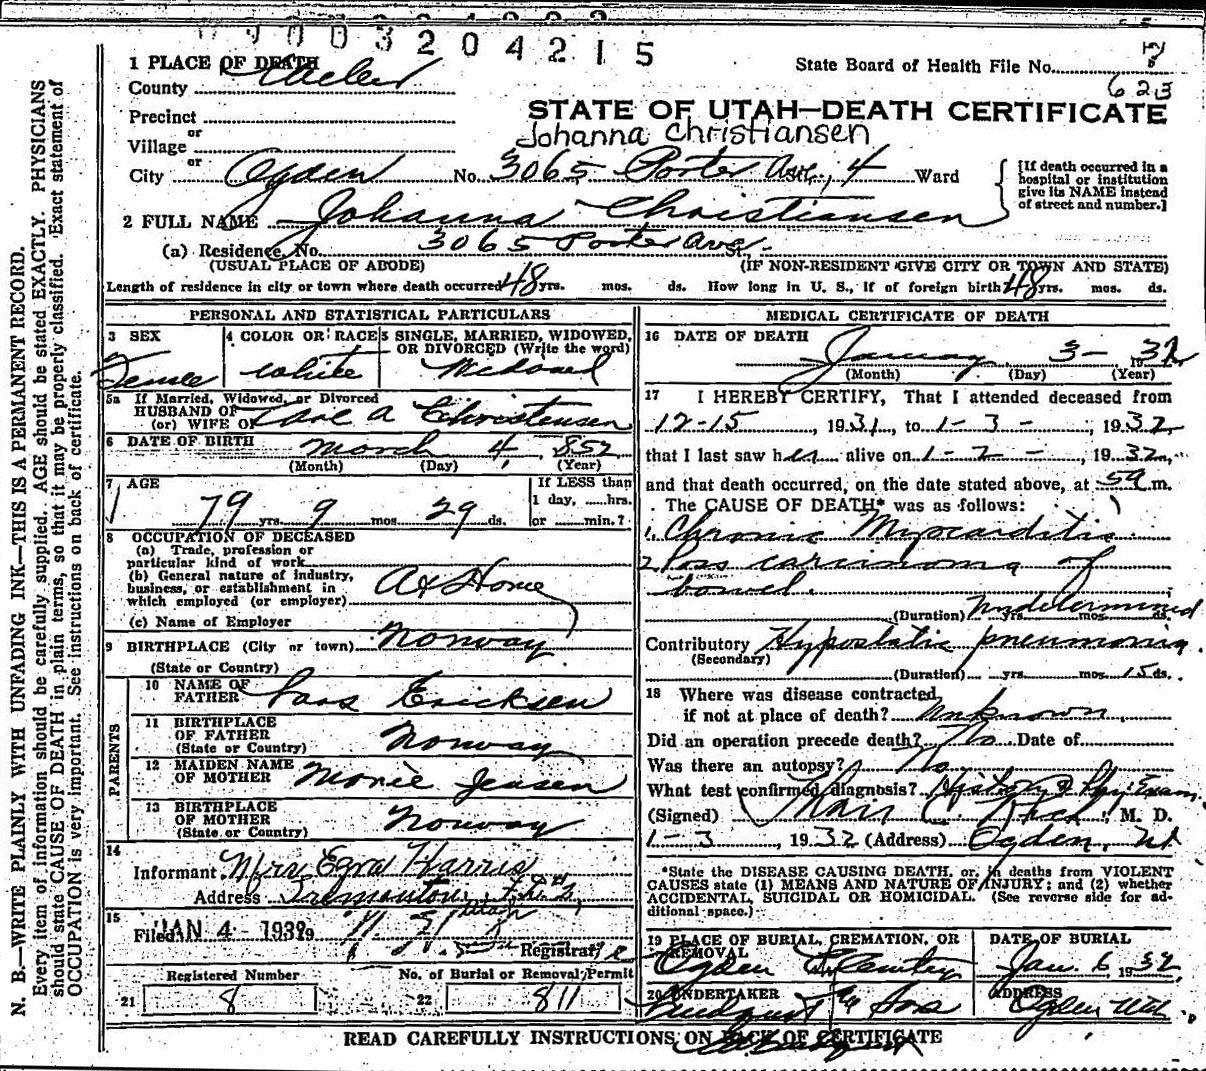 003204215
1 PLACE OF DEATH
County Weber
State Board of Health File No. 7
623
Precinct
or
Village
or
STATE OF UTAH—DEATH CERTIFICATE
Johanna Christiansen
City Ogden No. 3065 Porter Ave St., 4 Ward
[If death occurred in a hospital or institution give its NAME instead of street and number.]
2 FULL NAME Johanna Christiansen
(a) Residence, No. 3065 Porter Ave St.
(USUAL PLACE OF ABODE) (IF NON-RESIDENT GIVE CITY OR TOWN AND STATE)
Length of residence in city or town where death occurred 48 yrs. mos. ds. How long in U. S., if of foreign birth 48 yrs. mos. ds.
PERSONAL AND STATISTICAL PARTICULARS
3 SEX
Female
4 COLOR OR RACE
White
5 SINGLE, MARRIED, WIDOWED, OR DIVORCED (Write the word)
Widowed
5a If Married, Widowed, or Divorced
HUSBAND OF
(or) WIFE OF A Christensen
6 DATE OF BIRTH March 4, 1852
(Month) (Day) (Year)
7 AGE
79 yrs. 9 mos. 29 ds.
If LESS than
1 day, hrs.
or min.?
8 OCCUPATION OF DECEASED
(a) Trade, profession or
particular kind of work
(b) General nature of industry,
business, or establishment in
which employed (or employer) At Home
(c) Name of Employer
9 BIRTHPLACE (City or town) Norway
(State or Country)
PARENTS
10 NAME OF
FATHER Lars Ericksen
11 BIRTHPLACE
OF FATHER
(State or Country) Norway
12 MAIDEN NAME
OF MOTHER Marie Jensen
13 BIRTHPLACE
OF MOTHER
(State or Country) Norway
14
Informant Mrs Ezra Harris
Address Tremonton, Utah
15
Filed JAN 4 - 1932 19
Registrar
Registered Number
21 8
No. of Burial or Removal Permit
22 811
MEDICAL CERTIFICATE OF DEATH
16 DATE OF DEATH
January 3- 1932
(Month) (Day) (Year)
17 I HEREBY CERTIFY, That I attended deceased from
12-15, 1931, to 1-3-, 1932,
that I last saw her alive on 1-2-, 1932,
and that death occurred, on the date stated above, at 5a m.
The CAUSE OF DEATH* was as follows:
1. Chronic Myocarditis
2. Poss carcinoma of
bowel.
(Duration) Undetermined yrs. mos. ds.
Contributory Hypostatic pneumonia.
(Secondary)
(Duration) yrs. mos. 15 ds.
18 Where was disease contracted,
if not at place of death? Unknown.
Did an operation precede death? No Date of
Was there an autopsy? No
What test confirmed diagnosis? History & Phy. Exam.
(Signed) C. Rich, M. D.
1-3, 1932 (Address) Ogden, Ut
*State the DISEASE CAUSING DEATH, or, in deaths from VIOLENT
CAUSES state (1) MEANS AND NATURE OF INJURY; and (2) whether
ACCIDENTAL, SUICIDAL OR HOMICIDAL. (See reverse side for additional space.)
19 PLACE OF BURIAL, CREMATION, OR
REMOVAL
Ogden Cemetery
DATE OF BURIAL
Jan. 6, 1932
20 UNDERTAKER
& Sons
ADDRESS
Ogden Utah
READ CAREFULLY INSTRUCTIONS ON BACK OF CERTIFICATE
N. B.—WRITE PLAINLY WITH UNFADING INK—THIS IS A PERMANENT RECORD.
Every item of information should be carefully supplied. AGE should be stated EXACTLY. PHYSICIANS
should state CAUSE OF DEATH in plain terms, so that it may be properly classified. Exact statement of
OCCUPATION is very important. See instructions on back of certificate.